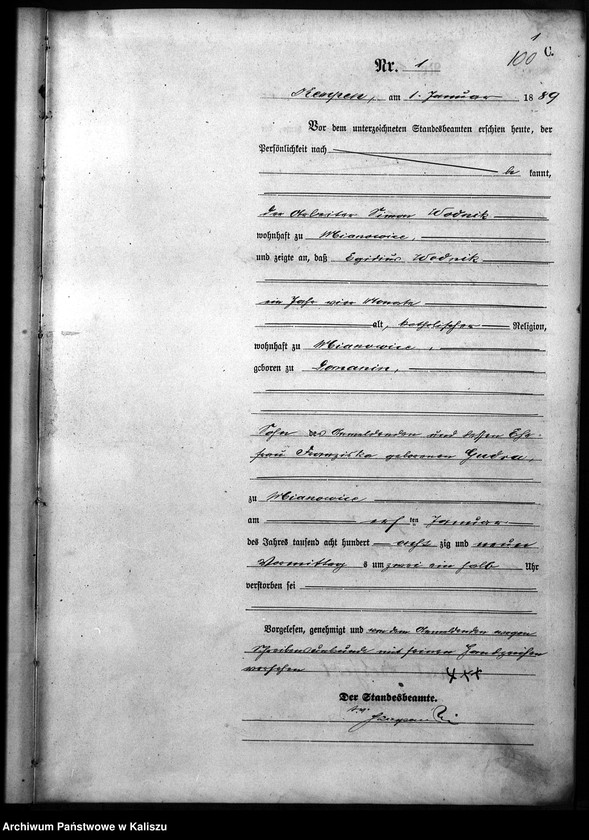 1
100
C.
Nr. 1
Kempen, am 1. Januar 1889
Vor dem unterzeichneten Standesbeamten erschien heute, der
Persönlichkeit nach
be kannt,
der Arbeiter Simon Wodnik
wohnhaft zu Mianowice,
und zeigte an, daß Egidius Wodnik
ein Jahr vier Monate
alt, katholischer Religion,
wohnhaft zu Mianowice,
geboren zu Domanin,
Sohn des Anmeldenden und dessen Ehe-
frau Franziska geborenen Gudra,
zu Mianowice
am ersten Januar
des Jahres tausend acht hundert acht zig und neun
Vormittag s um zwei ein halb Uhr
verstorben sei
Vorgelesen, genehmigt und von dem Anmeldenden wegen
Schreibensunkunde mit seinen Handzeichen
versehen +++
Der Standesbeamte.
Archiwum Państwowe w Kaliszu